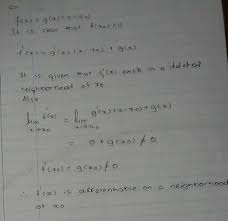 f(x) = g(x)(x-x0)
It is clear that f(x0) = 0
f'(x) = g'(x)(x-x0) + g(x)
It is given that g'(x) exists in a deleted
neighborhood of x0
Also
lim x→x0 f'(x) = lim x→x0 g'(x)(x-x0) + g(x)
= 0 + g(x0) ≠ 0
f'(x0) = g(x0) ≠ 0
∴ f(x) is differentiable on a neighborhood
of x0